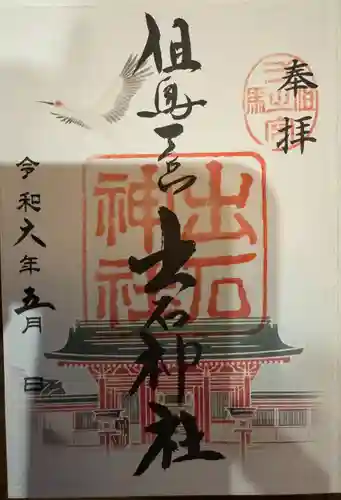 奉拝
但馬一宮出石神社
出石
神社
令和六年五月 日